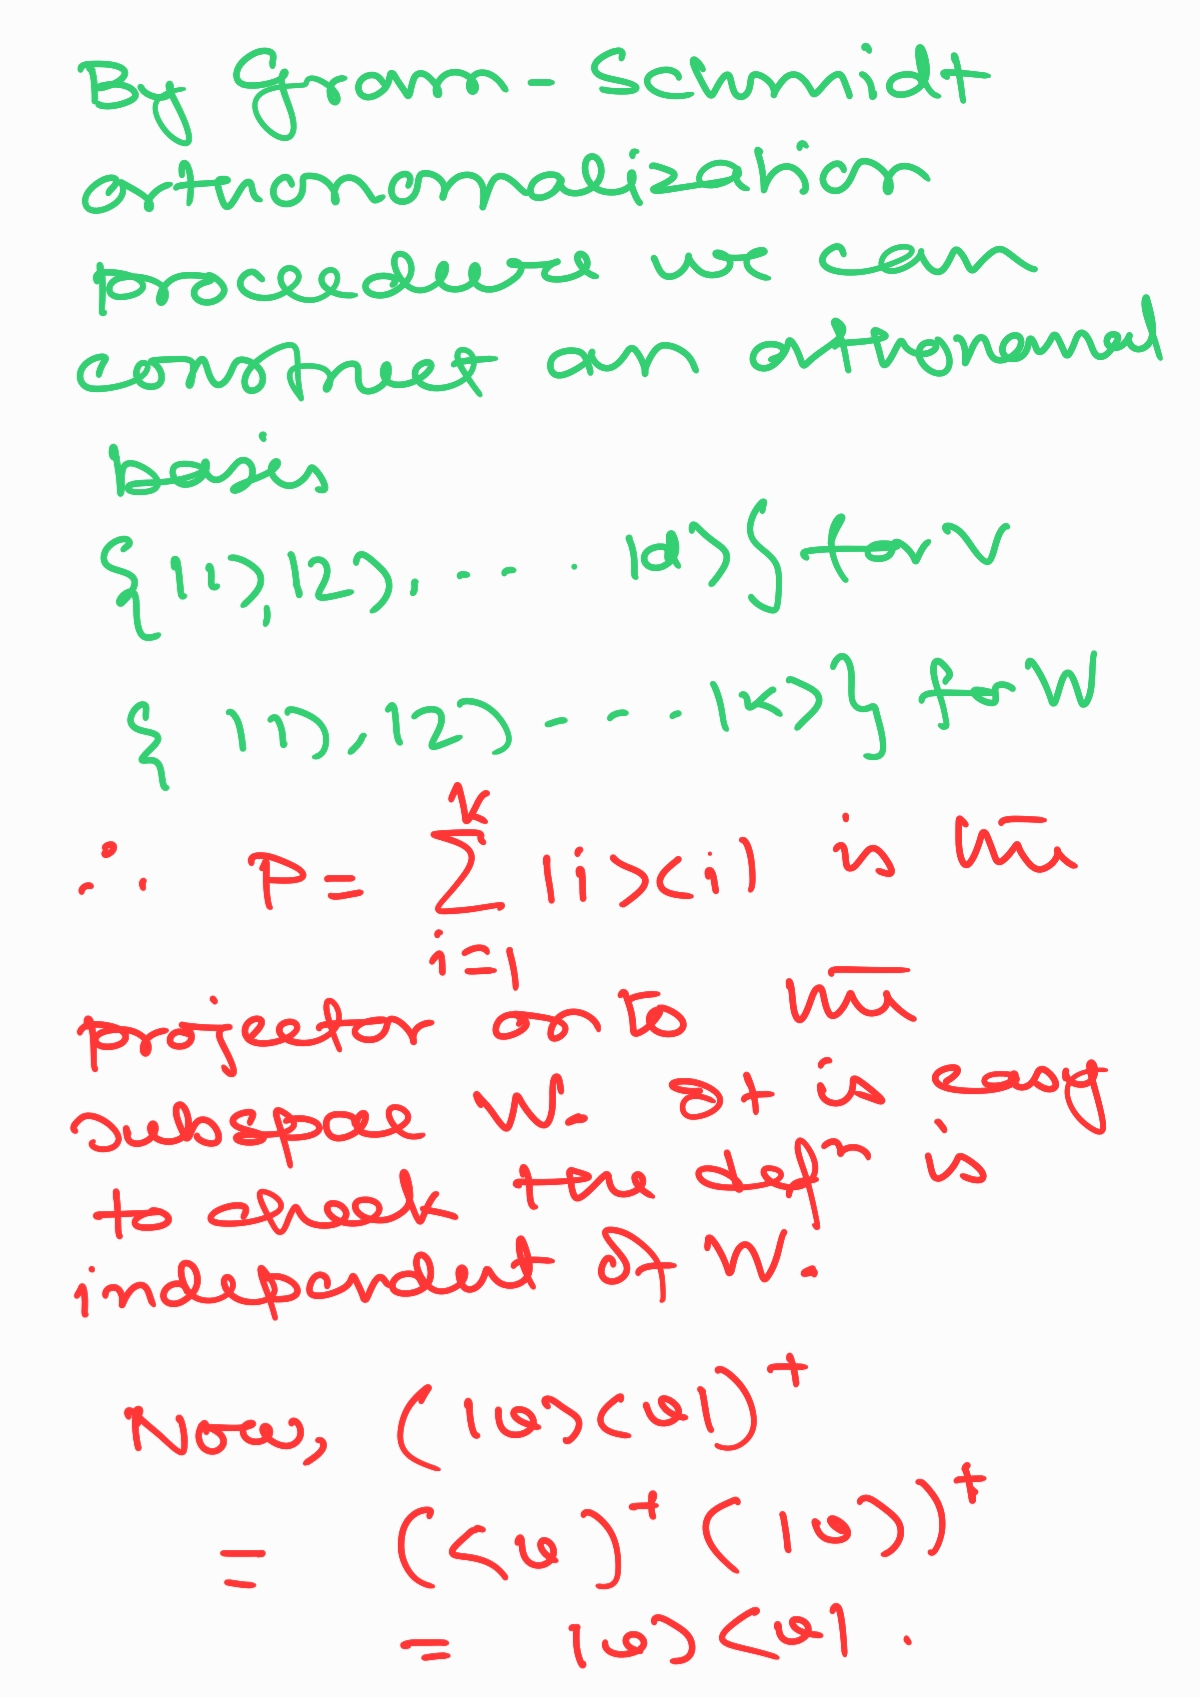 By Gram-Schmidt
orthonormalization
procedure we can
construct an orthonormal
basis
{|1⟩,|2⟩, ..... |d⟩} for V
{|1⟩,|2⟩ ..... |k⟩} for W
∴ P = ∑_{i=1}^{k} |i⟩⟨i| is the
projector onto the
subspace W. It is easy
to check the defⁿ is
independent of W.
Now, (|v⟩⟨v|)†
= (⟨v)† (|v⟩)†
= |v⟩⟨v|.